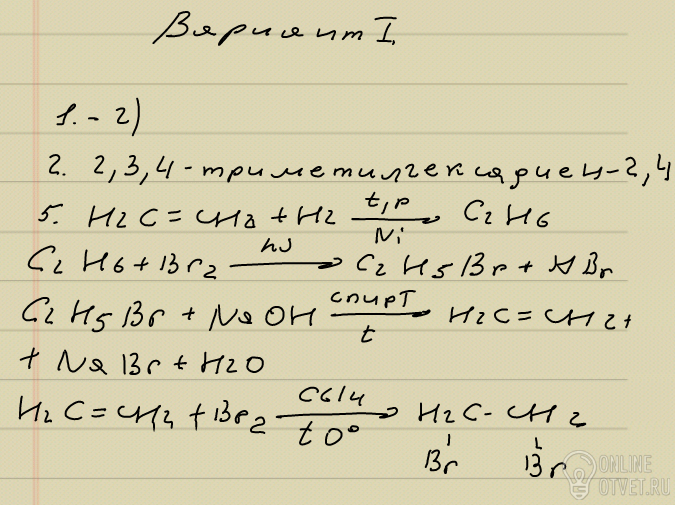 Вариант I.
1. - 2)
2. 2,3,4-триметилгексадиен-2,4
5. H2C=CH2+H2 t,p Ni → C2H6
C2H6+Br2 hν → C2H5Br+HBr
C2H5Br+NaOH спирт t → H2C=CH2+
+ NaBr+H2O
H2C=CH2+Br2 CCl4 t 0° → H2C-CH2
Br Br
ONLINE
OTVET.RU